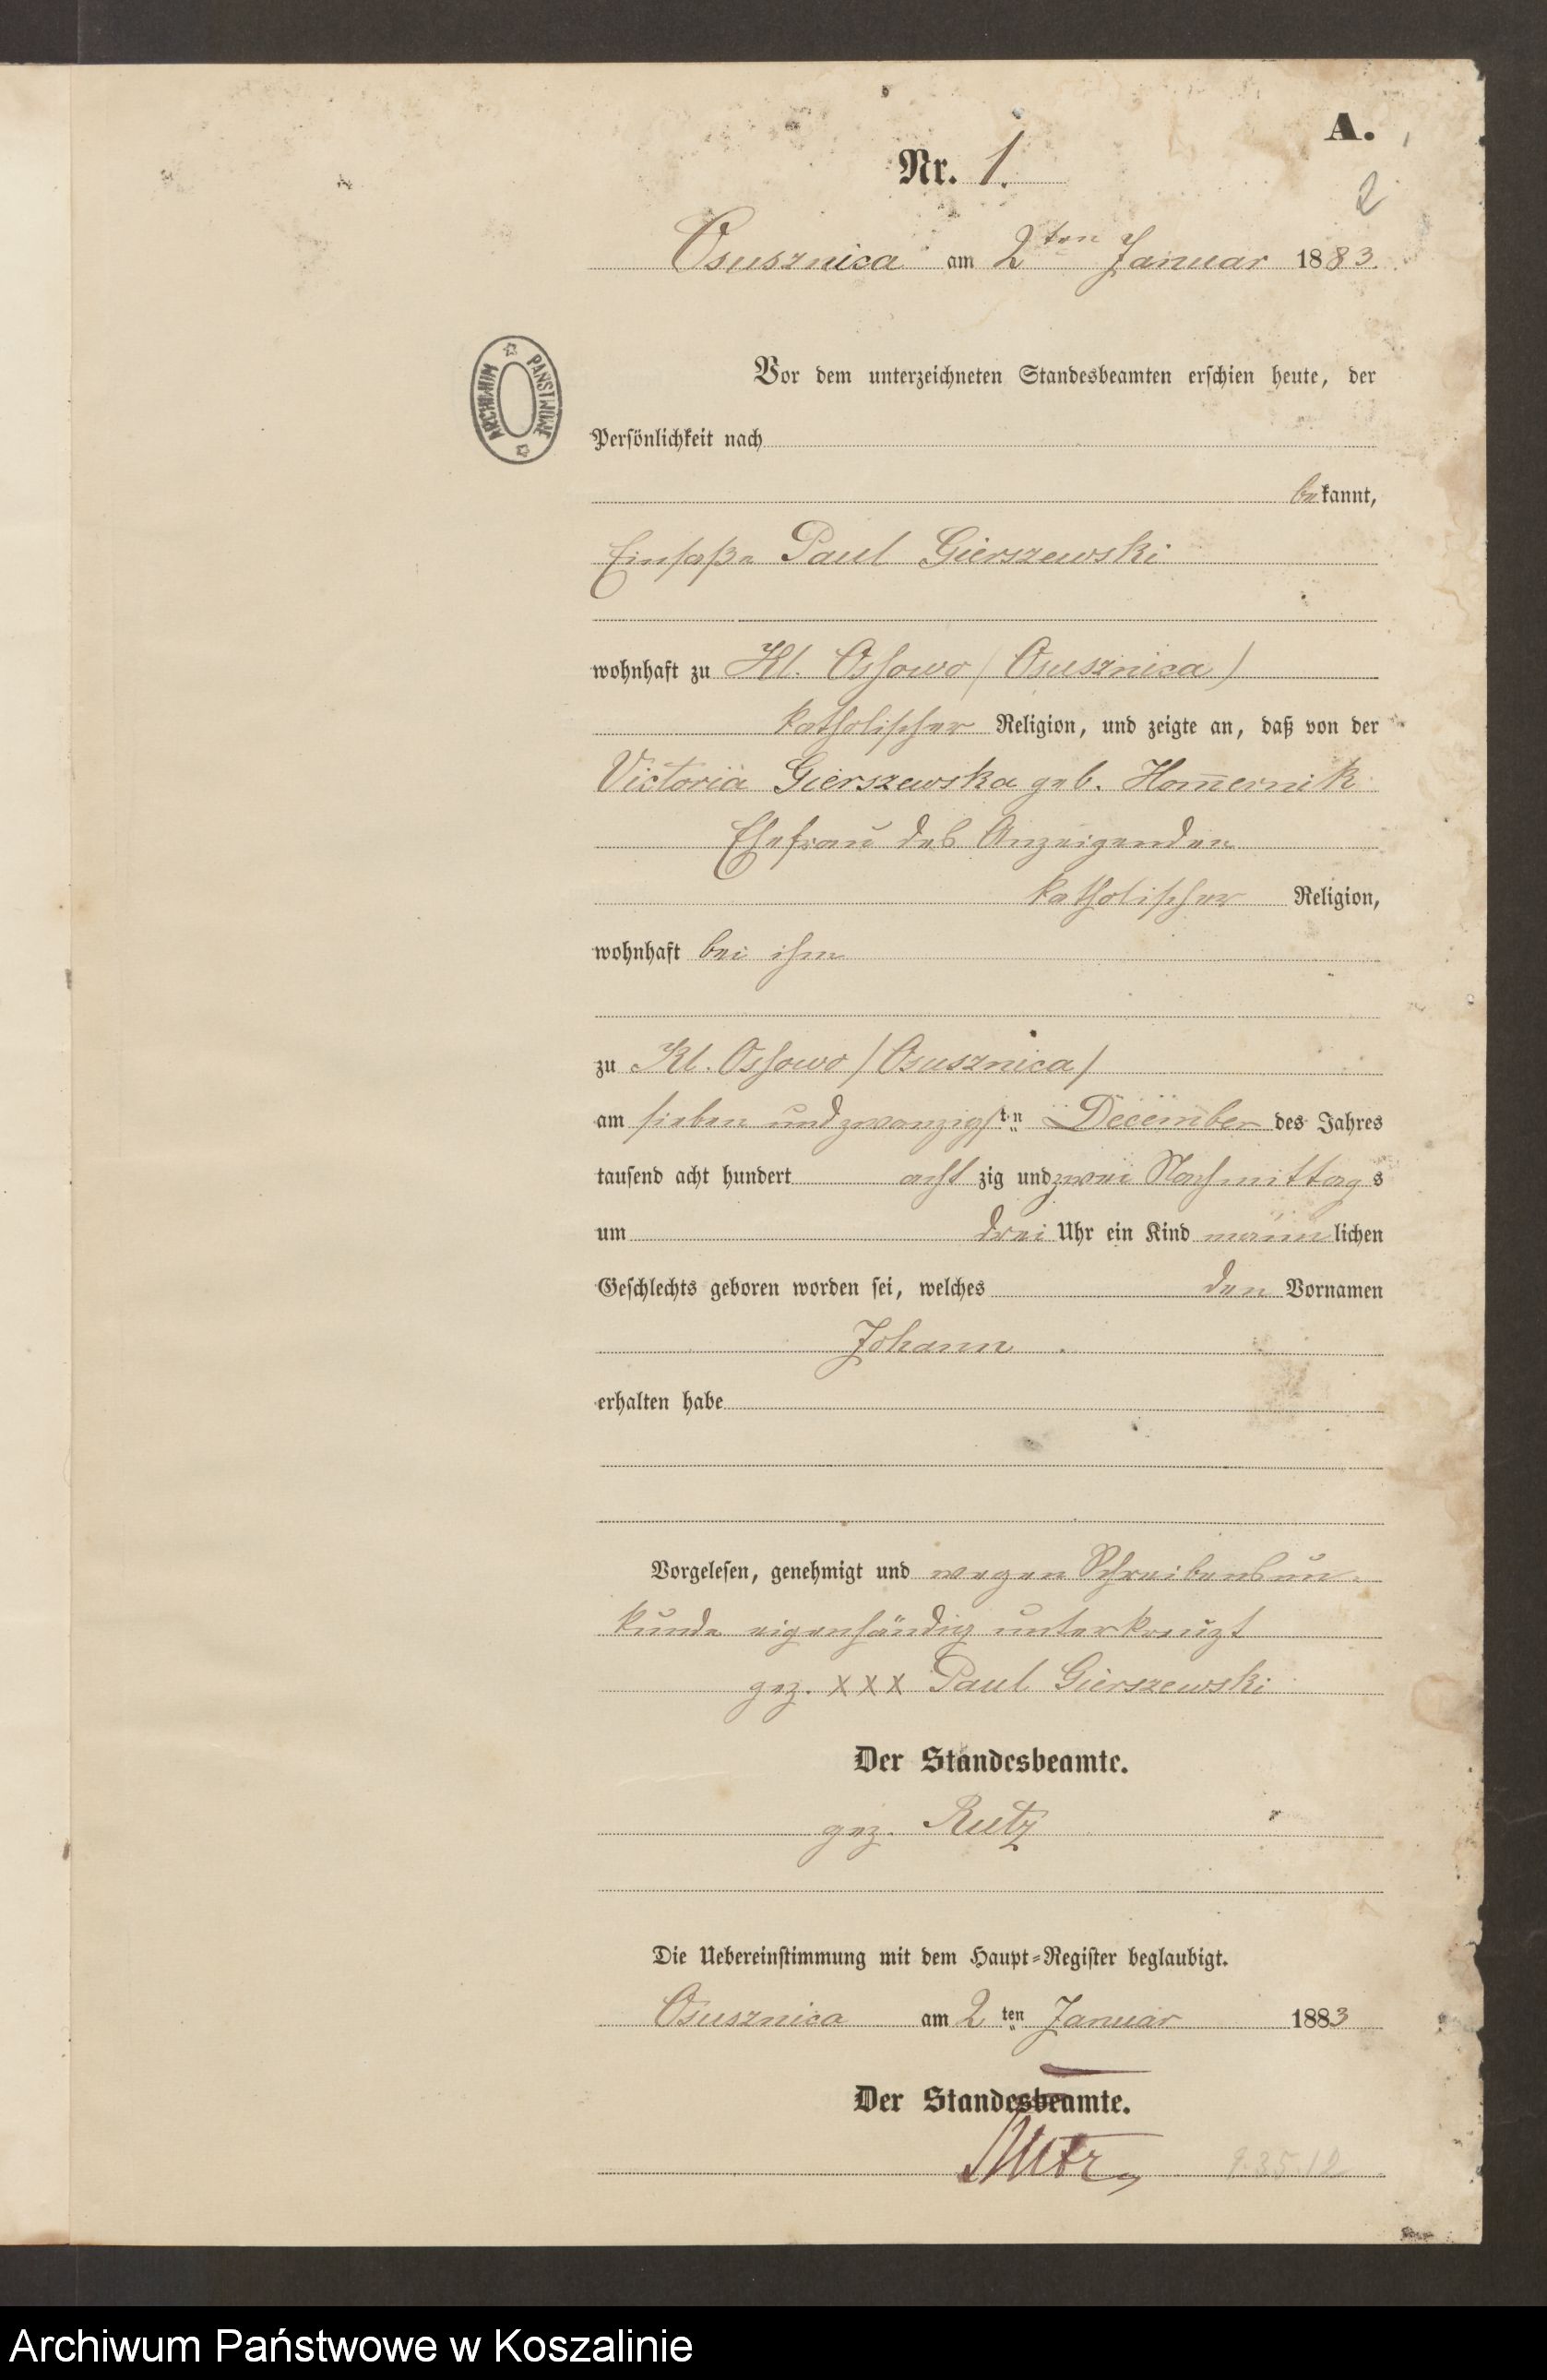 A.
Nr. 1.
2
Osusznica am 2ten Januar 1883.
ARCHIWUM PAŃSTWOWE
Vor dem unterzeichneten Standesbeamten erschien heute, der
Persönlichkeit nach
bekannt,
Einsaße Paul Gierszewski
wohnhaft zu Kl. Ossowo (Osusznica)
katholischer Religion, und zeigte an, daß von der
Victoria Gierszewska geb. Hom̅ernik
Ehefrau des Anzeigenden
katholischer Religion,
wohnhaft bei ihm
zu Kl. Ossowo (Osusznica)
am sieben und zwanzigsten December des Jahres
tausend acht hundert achtzig und zwei Nachmittags
um drei Uhr ein Kind männlichen
Geschlechts geboren worden sei, welches den Vornamen
Johann.
erhalten habe
Vorgelesen, genehmigt und wegen Schreibensun-
kunde eigenhändig unterkreuzt
gez. XXX Paul Gierszewski
Der Standesbeamte.
gez. Rutz
Die Uebereinstimmung mit dem Haupt=Register beglaubigt.
Osusznica am 2ten Januar 1883
Der Standesbeamte.
Rutz
Archiwum Państwowe w Koszalinie